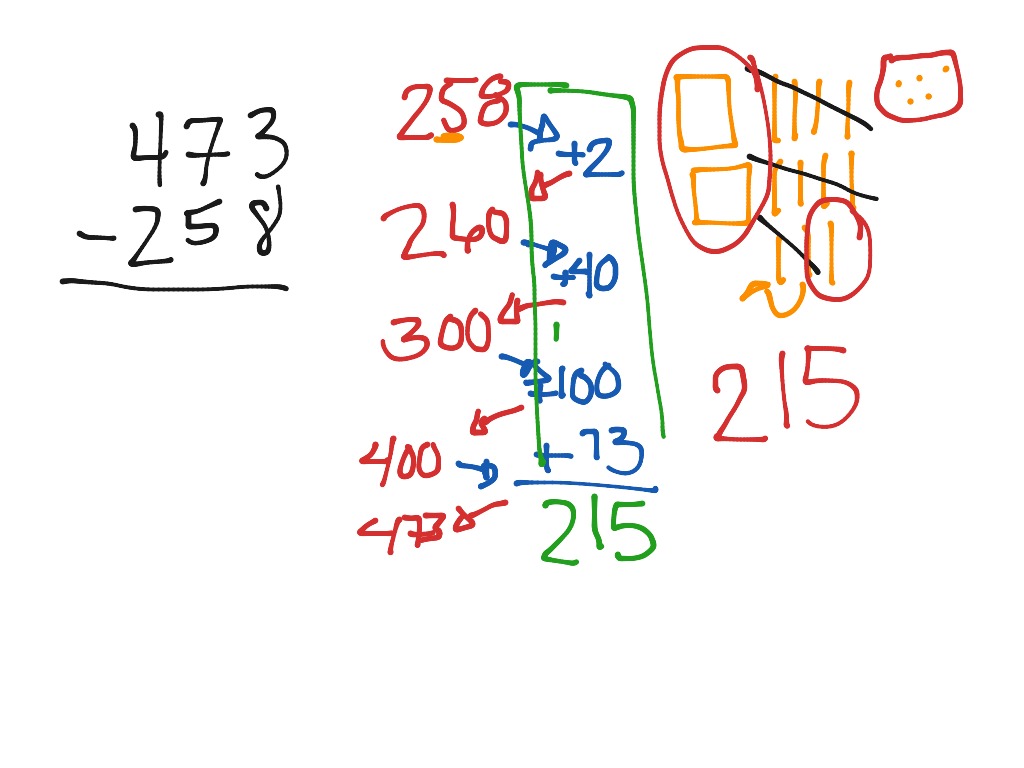 473
-258
258
+2
260
+40
300
+100
400
+73
473
215
215